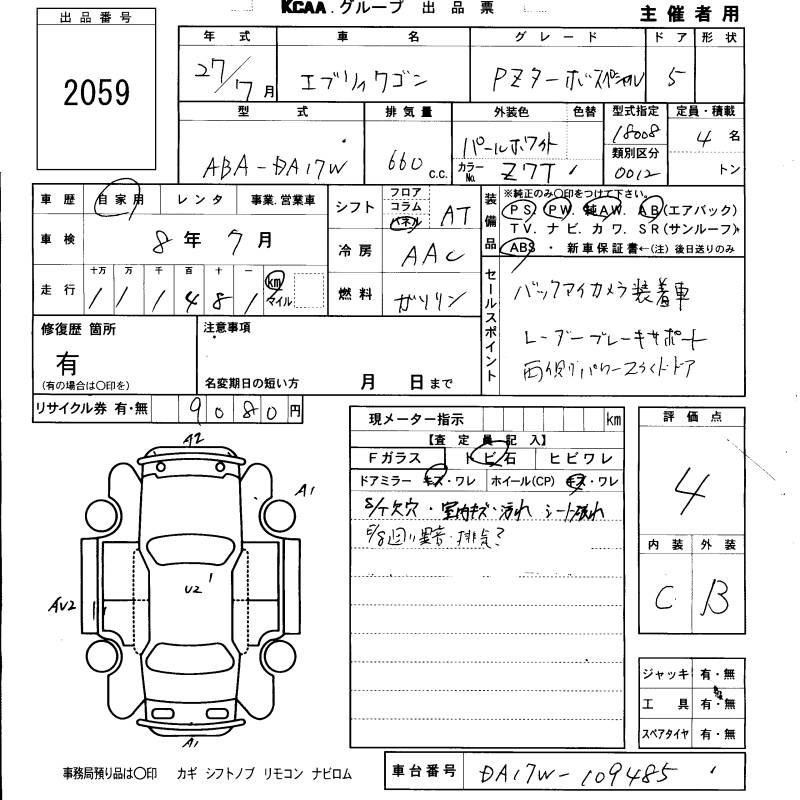 KCAA.グループ 出品票
主催者用
出品番号
2059
年式 車名 グレード ドア 形状
27/7月 エブリィワゴン PZターボスペシャル 5
型式 排気量 外装色 色替 型式指定 定員・積載
ABA-DA17W 660 c.c. パールホワイト 18008 4名
カラーNo. Z7T 類別区分 0012 トン
車歴 自家用 レンタ 事業.営業車
シフト フロア コラム パネル AT
装備品 ※純正のみ○印をつけて下さい。
PS. PW. 純AW. AB(エアバック)
TV.ナビ.カワ.SR(サンルーフ)
ABS・新車保証書←(注)後日送りのみ
車検 8年7月
冷房 AAC
走行 十万 万 千 百 十 一
1 1 1 4 8 1 km マイル
燃料 ガソリン
セールスポイント
バックアイカメラ装着車
レーダーブレーキサポート
両側パワースライドドア
修復歴 箇所
有
(有の場合は○印を)
注意事項
名変期日の短い方 月 日まで
リサイクル券 有・無 9080円
現メーター指示 km
【査定員記入】
Fガラス トビ石 ヒビワレ
ドアミラー キズ・ワレ ホイール(CP) キズ・ワレ
S/T欠穴・室内キズ・汚れ シート破れ
異音・排気?
評価点
4
内装 外装
C B
A2
A1
U2
AU2
A1
ジャッキ 有・無
工具 有・無
スペアタイヤ 有・無
事務局預り品は○印 カギ シフトノブ リモコン ナビロム
車台番号 DA17W-109485